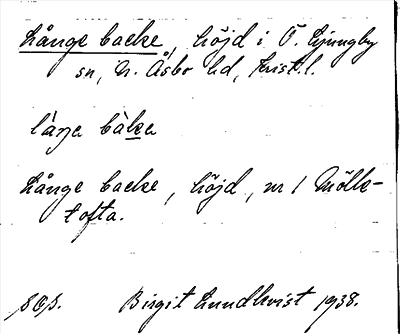 Långe backe, höjd i Ö. Ljungby
sn, N. Åsbo hd, Krist. l.
Långe backe, höjd, nr 1 Mölle-
tofta.
Birgit Lundkvist 1938.